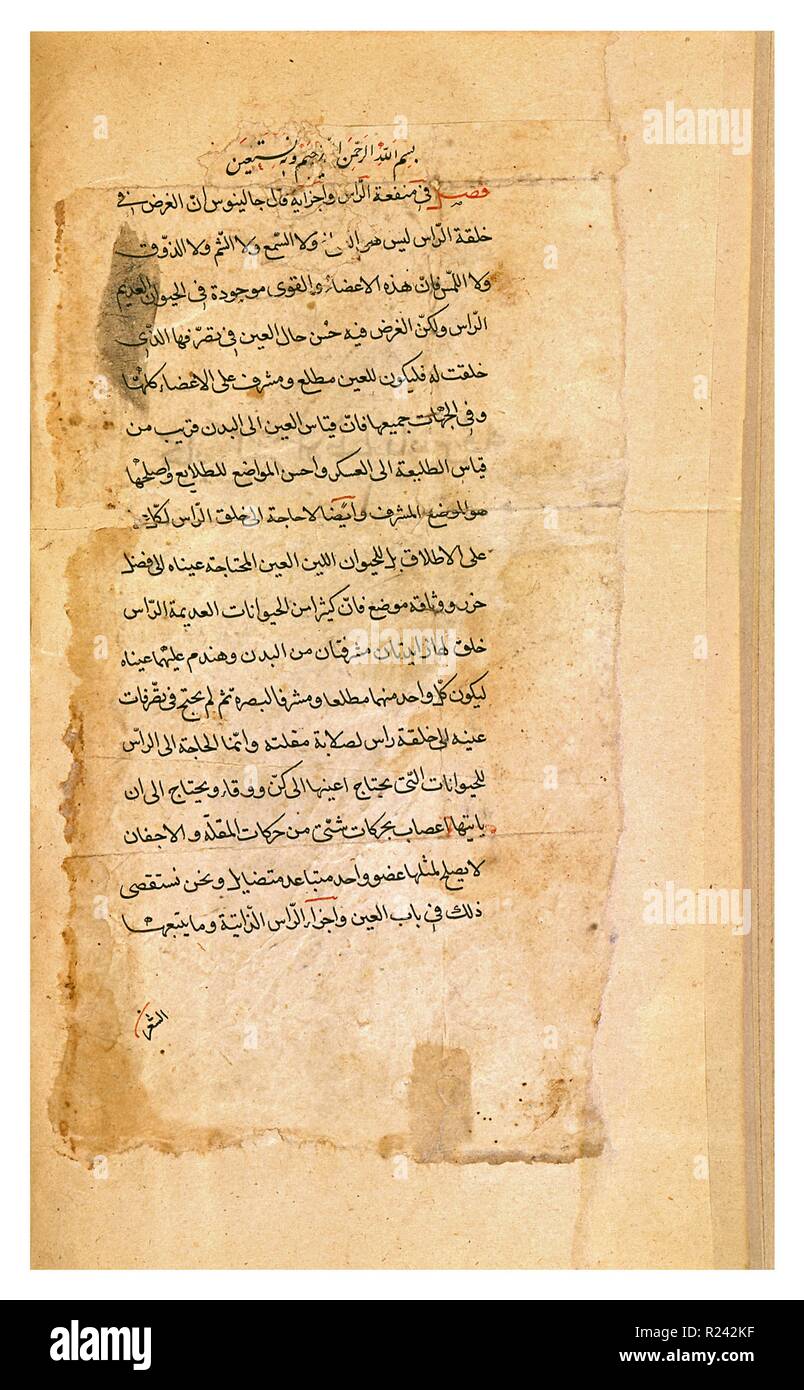 بسم الله الرحمن الرحيم وبه نستعين
فصل في منفعة الرّأس واجزايه قال جالينوس انّ الغرض في
خلقة الرّأس ليس هو ولا السّمع ولا الشّم ولا الذوق
ولا اللمس فانّ هذه الاعضاء والقوى موجودة في الحيوان العديم
الرّاس ولكنّ الغرض فيه حُسن حال العين في تصرّفها الذّى
خلقت له فليكون للعين مطلع ومشرف على الاعضاء كلها
وفى الجهات جميعها فانّ قياس العين الى البدن قريب من
قياس الطليعة الى العسكر واحسن المواضع للطلايع واصلحها
هو الموضع المشرف وأيضا لا حاجة الى خلق الرّاس لكل
على الاطلاق بل للحيوان اللين العين المحتاجة عيناه الى فضل
حرز ووثاقة موضع فانّ كثيرا من الحيوانات العديمة الرّاس
خلق لها مشرفتان من البدن وهندم عليهما عيناه
ليكون كل واحد منهما مطلعا ومشرفا لبصره ثم لم يحتج في تصّرفات
عينه الى خلقة راس لصلابة مقلته وانما الحاجة الى الراس
للحيوانات التّى يحتاج اعينها الى كنّ ووقاء ويحتاج الى ان
ياتيها اعصاب بحركات شتّى من حركات المقلة والاجفان
لا يصلح لمثلها عضو واحد متباعد متضايل ونحن نستقصى
ذلك فى باب العين واجزاء الرّاس الذّاتية وما يتبعها
الشعر
alamy
R242KF
www.alamy.com